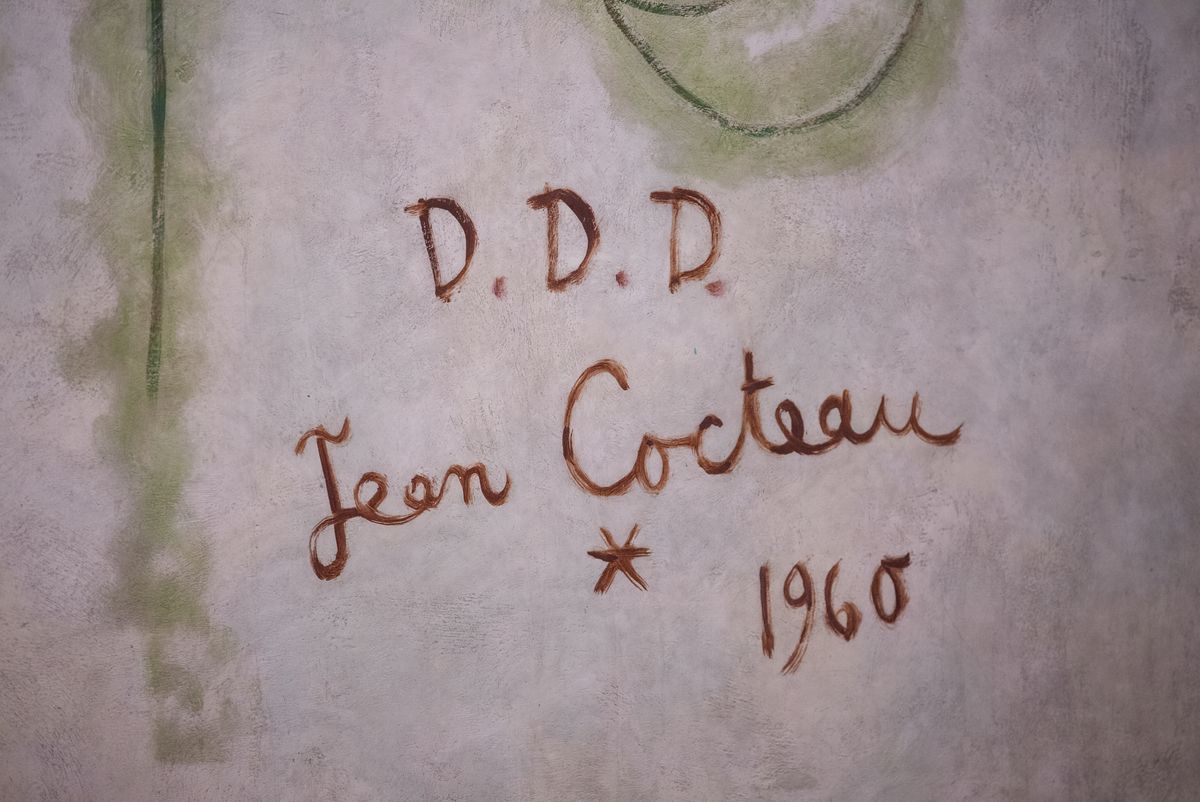 D. D. D.
Jean Cocteau
*
1960